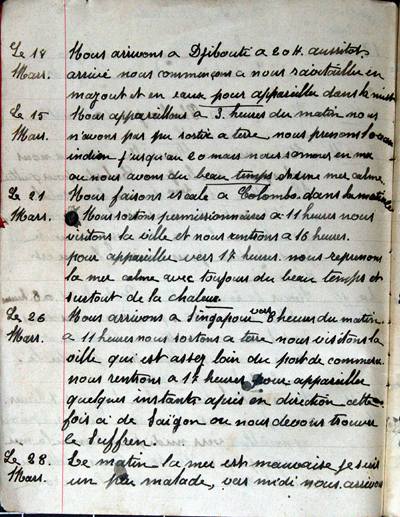 Le 18 Nous arrivons a Djibouti a 20 H. aussitot
Mars. arrivé nous commençons a nous ravitailler en
mazout et en eaux pour appareiller dans la nuit
Le 15 Nous appareillons a 3 heures du matin nous
Mars. n'avons pas pu sortir a terre nous prenons l'ocean
indien jusqu'au 20 mars nous sommes en mer
ou nous avons du beau temps et une mer calme
Le 21 Nous faisons escale a Colombo. dans la matinée
Mars. Nous sortons permissionnaires a 11 heures nous
visitons la ville et nous rentrons a 16 heures.
pour appareiller vers 17 heures. nous reprenons
la mer calme avec toujours du beau temps et
surtout de la chaleur.
Le 26 Nous arrivons a Singapour vers 8 heures du matin
Mars. a 11 heures nous sortons a terre nous visitons la
ville qui est assez loin du port de commerce.
nous rentrons a 17 heures pour appareiller
quelques instants après en direction cette
fois ci de Saïgon ou nous devons trouver
le Suffren.
Le 28. Le matin la mer est mauvaise je suis
Mars. un peu malade, vers midi nous arrivons